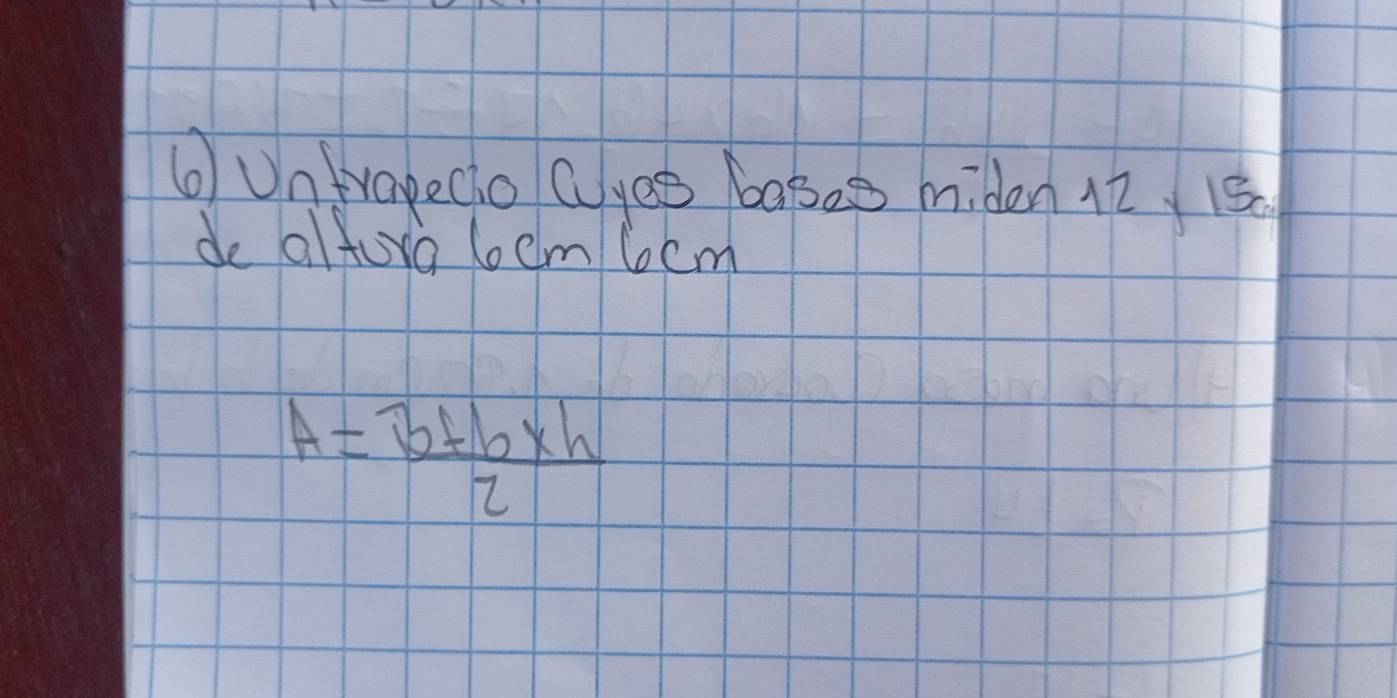 6) Un trapecio cuyas bases miden 12 y 15cm
de altura 6cm 6cm
A = B+b×h
2